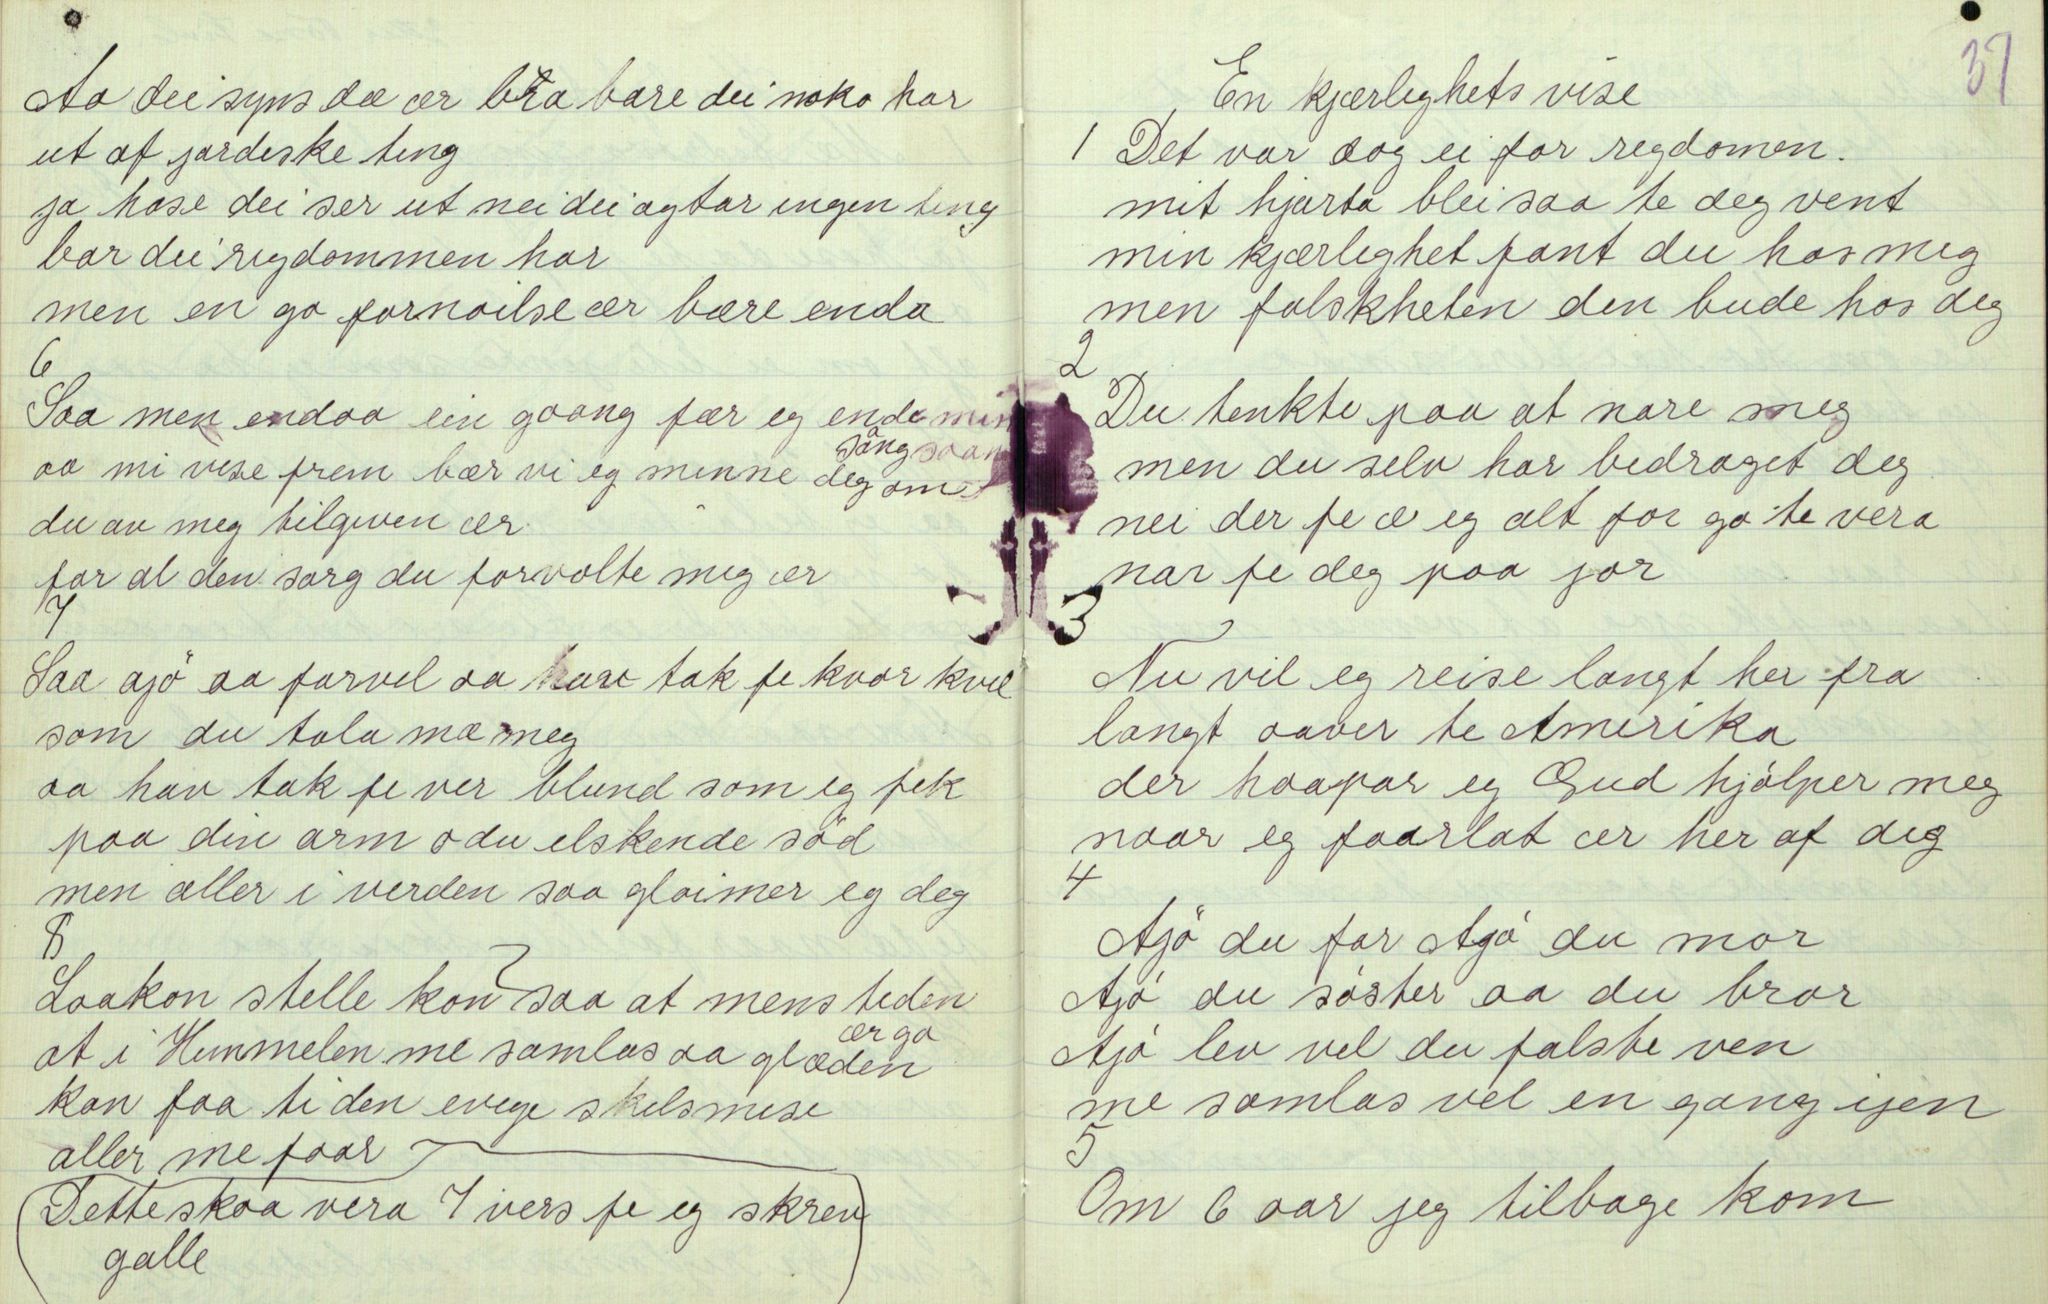 Aa dei syns dæ ær bra bare dei noko har
ut af jordeske ting
ja hose dei ser ut nei dei agtar ingen ting
bar dei rigdommen har
men en go fornøilse ær bære enda
6
Saa men endaa ein goang fær eg enda min
sång saan
aa mi vise frem bær vi eg minne deg om
du av meg tilgiven ær
for al den sorg du forvolte meg ær
7
Saa ajö aa farvel aa have tak fe kvar kvel
som du tala mæ meg
aa hav tak fe ver blund som eg fek
paa din arm o du elskende söd
men aller i verden saa gloimer eg deg
8
Laakon stelle kon saa at mens tiden
ær go
at i Himmelen me samlas aa glæden
kan faa ti den evege skilsmise
aller me faar
Dette skaa vera 7 vers fe eg skrev
galle
37
En kjærlighets vise
1 Det var dog ei for regdomen.
mit hjarta blei saa te deg vent
min kjærlighet fant du hos meg
men falskheten den bude hos deg
2
Du tenkte paa at nare meg
men du selv har bedraget deg
nei der fe æ eg alt for go te vera
nar fe deg paa jor
3
Nu vil eg reise langt her fra
langt aaver te Amerika
der haapar eg Gud hjölper meg
naar eg faarlat ær her af dig
4
Ajö du far Ajö du mor
Ajö du söster aa du bror
Ajö lev vel du falste ven
me samlas vel en gang ijen
5
Om 6 aar jeg tilbage kom